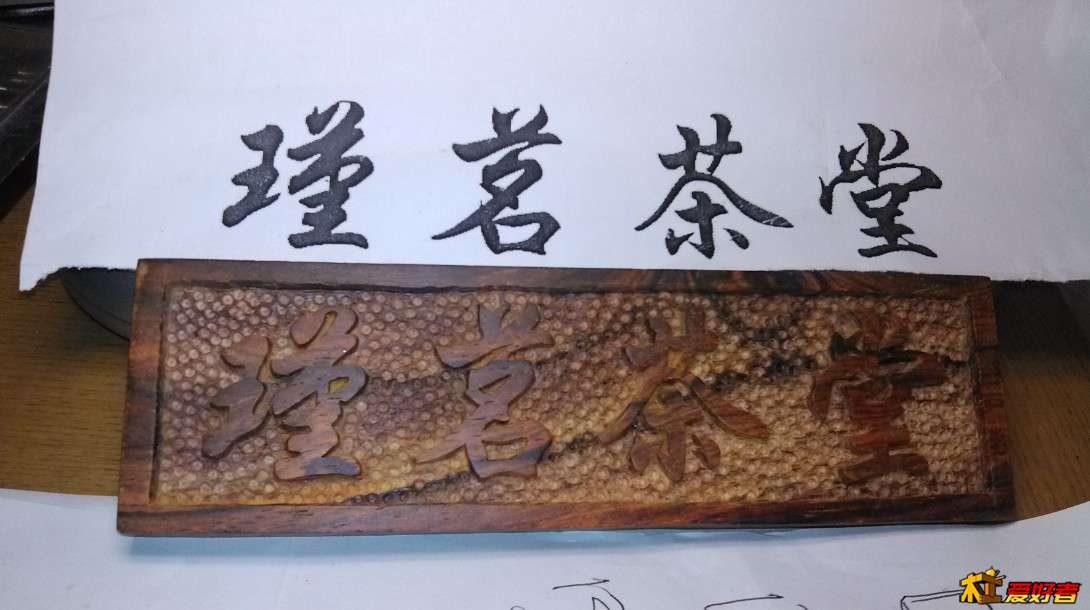 瑾茗茶堂
瑾茗茶堂
爱好者